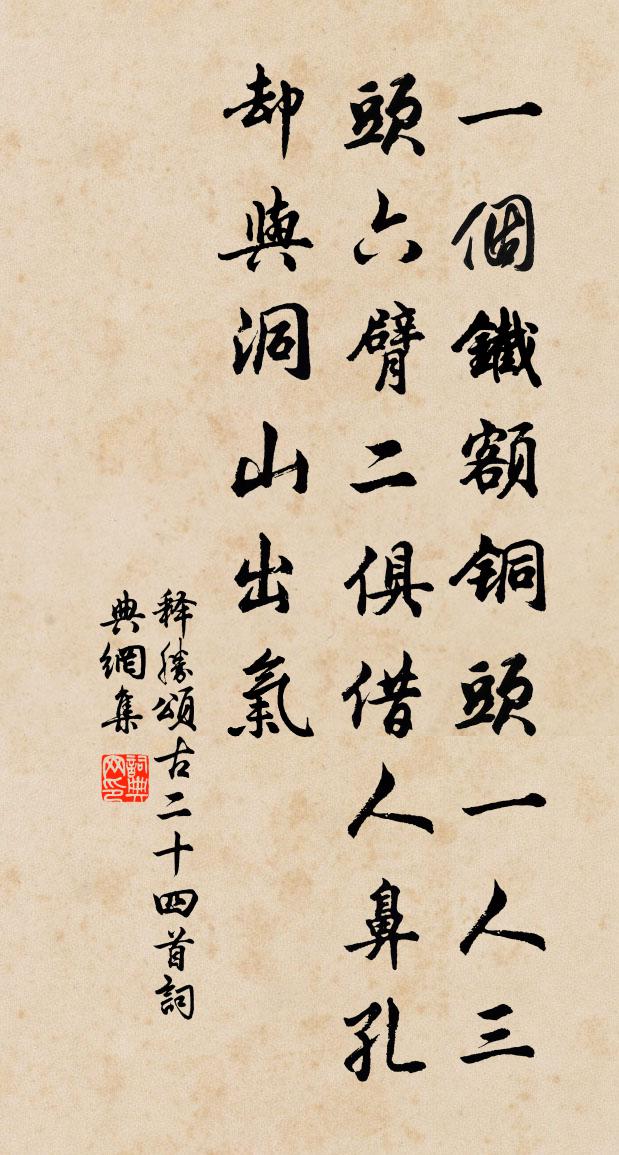 一個鐵額銅頭一人三
頭六臂二俱借人鼻孔
却與洞山出氣
释勝頌古二十四首詞
典網集
詞典
网印